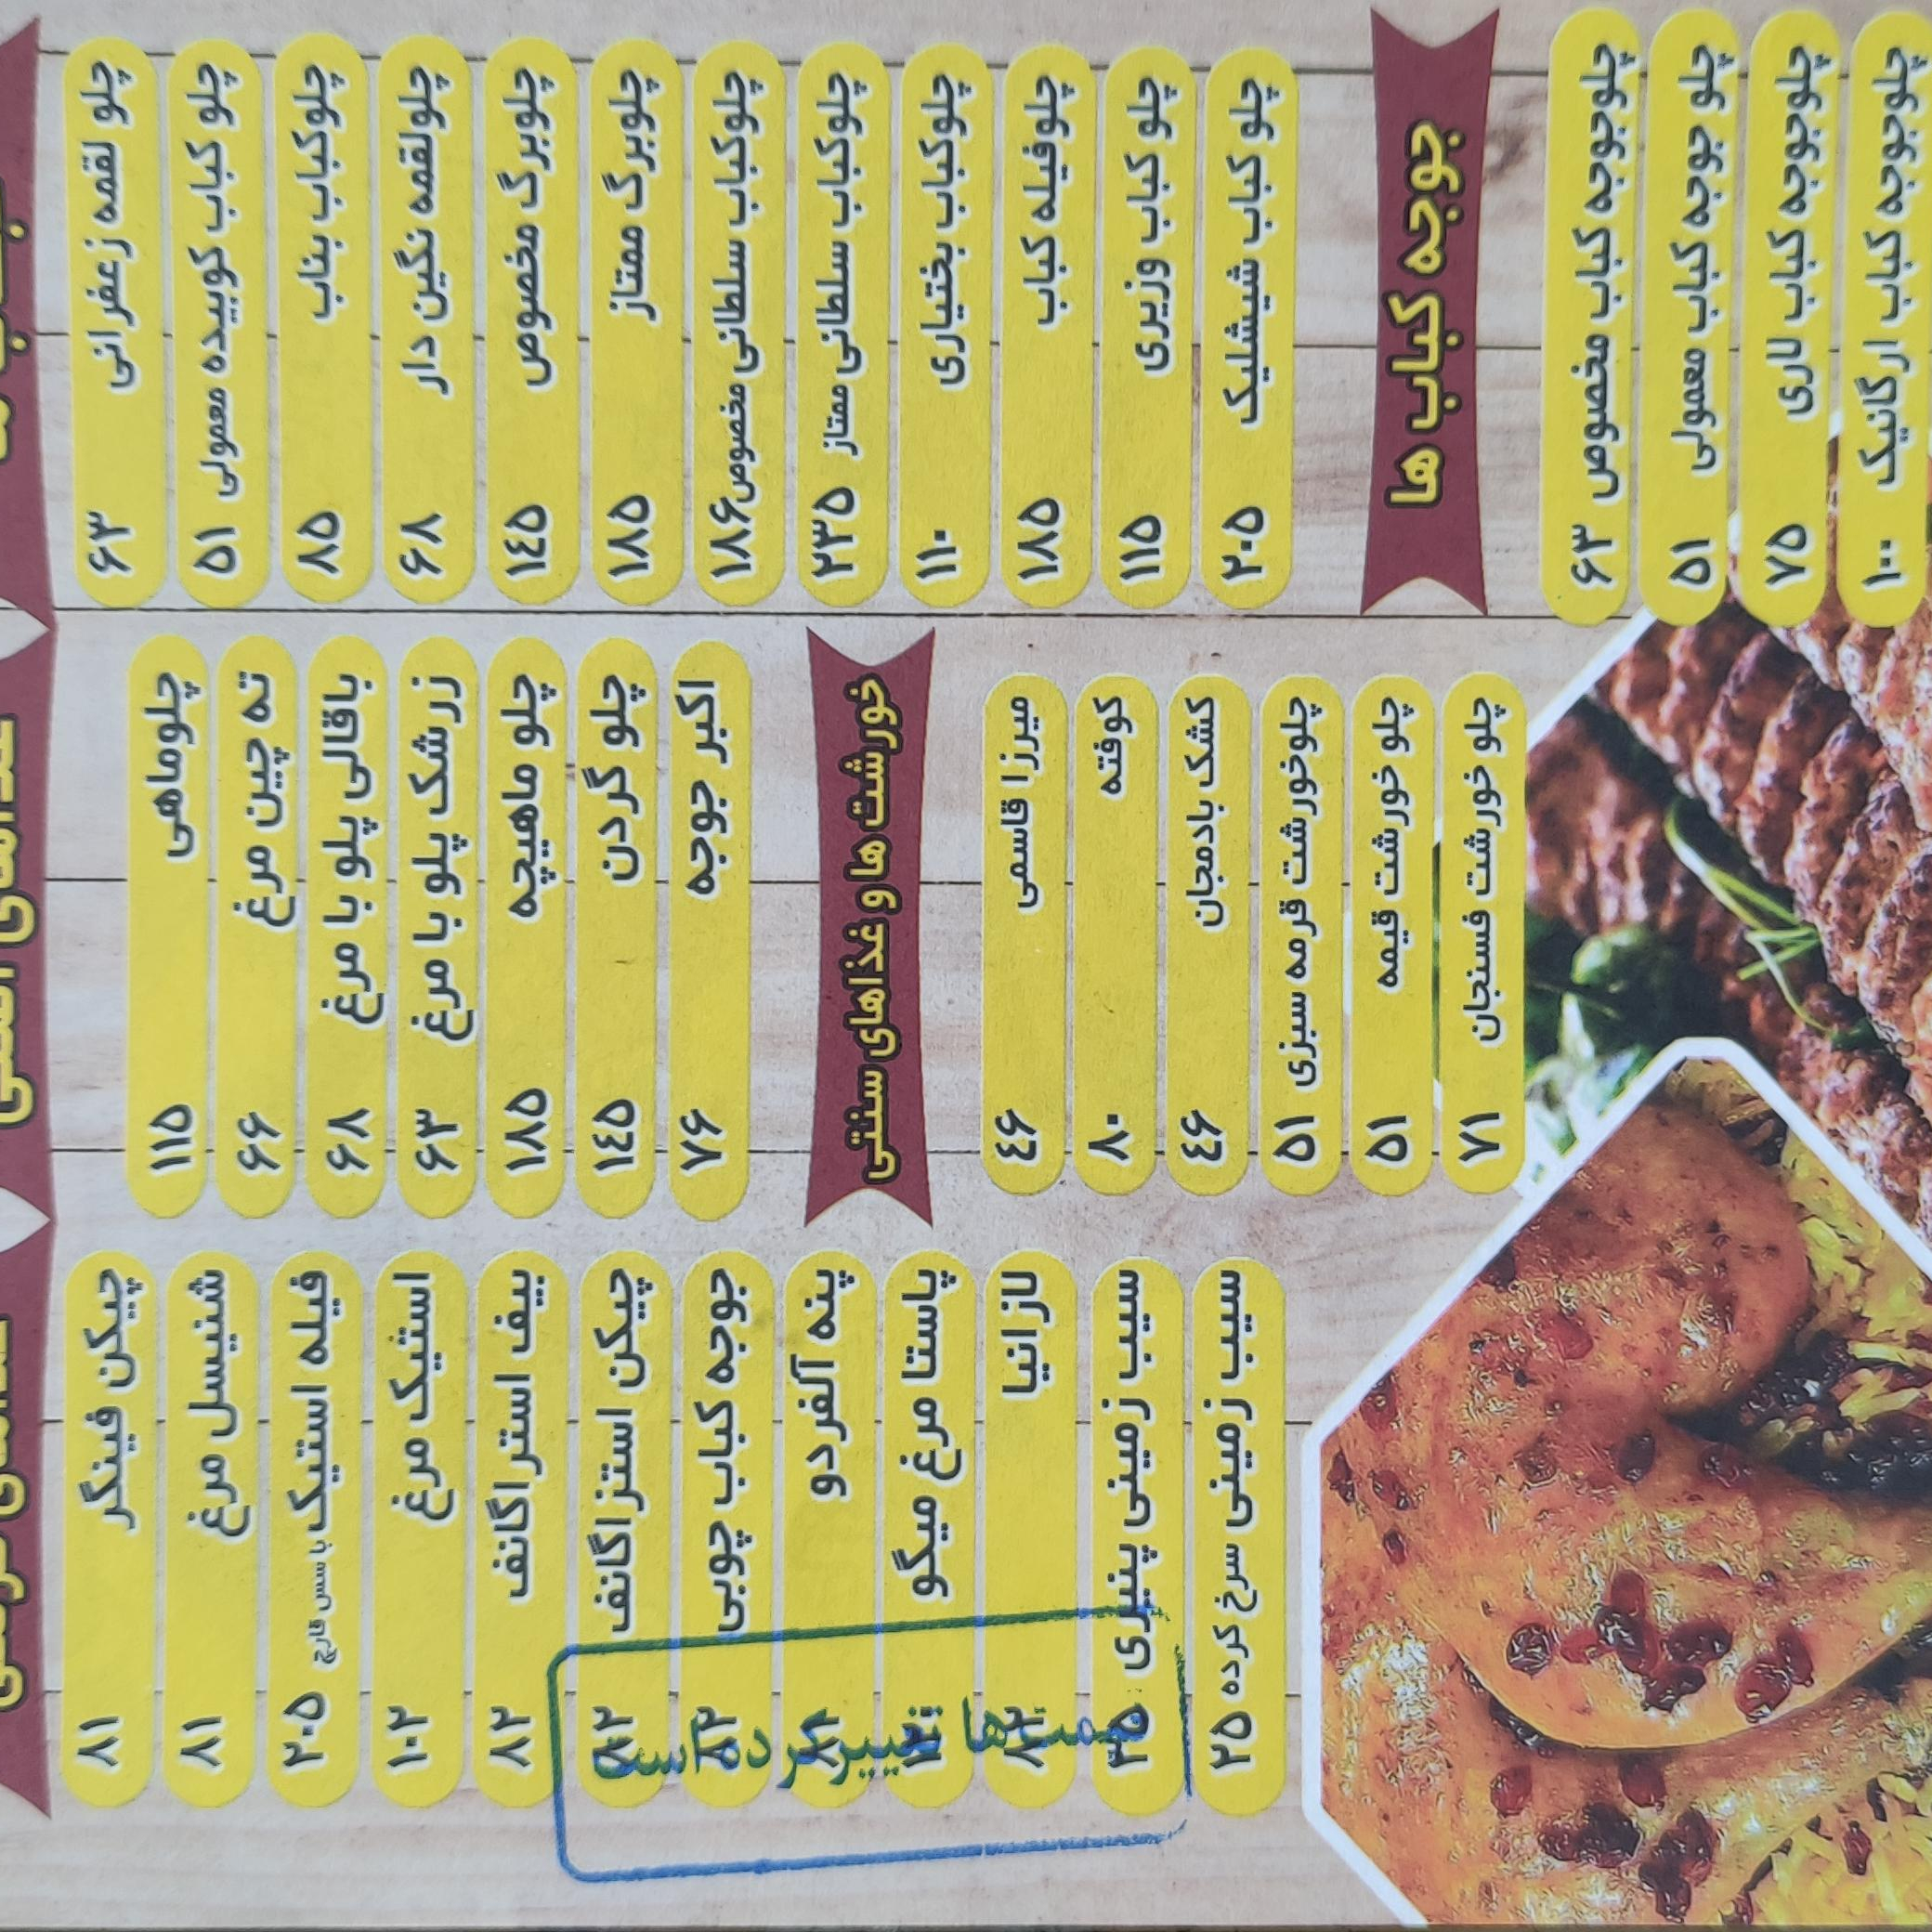 چلو لقمه زعفرانی ۶۳
چلو کباب کوبیده معمولی ۵۱
چلوکباب بناب ۷۵
چلولقمه نگین دار ۶۸
چلوبرگ مخصوص ۱٤۵
چلوبرگ ممتاز ۱۸۵
چلوکباب سلطانی مخصوص ۱۸۶
چلوکباب سلطانی ممتاز ۲۳۵
چلوکباب بختیاری ۱۱۰
چلوفیله کباب ۱۸۵
چلو کباب وزیری ۱۱۵
چلو کباب شیشلیک ۲۰۵
جوجه کباب ها
چلوجوجه کباب مخصوص ۶۳
چلو جوجه کباب معمولی ۵۱
چلوجوجه کباب لاری ۷۵
چلوجوجه کباب ارگانیک ۱۰۰
چلوماهی ۱۱۵
ته چین مرغ ۶۶
باقالی پلو با مرغ ۶۸
زرشک پلو با مرغ ۶۳
چلو ماهیچه ۱۸۵
چلو گردن ۱٤۵
اکبر جوجه ۷۶
خورشت ها و غذاهای سنتی
میرزا قاسمی ٤۶
کوفته ۷۰
کشک بادمجان ٤۶
چلوخورشت قرمه سبزی ۵۱
چلو خورشت قیمه ۵۱
چلو خورشت فسنجان ۷۱
چیکن فینگر ۸۱
شنیسل مرغ ۸۱
فیله استیک با سس قارچ ۲۰۵
استیک مرغ ۱۰۲
بیف استراگانف ۸۲
چیکن استراگانف
جوجه کباب چوبی
پنه آلفردو
پاستا مرغ میگو
لازانیا
سیب زمینی پنیری
سیب زمینی سرخ کرده ۲۵
قیمت ها تغییر کرده است